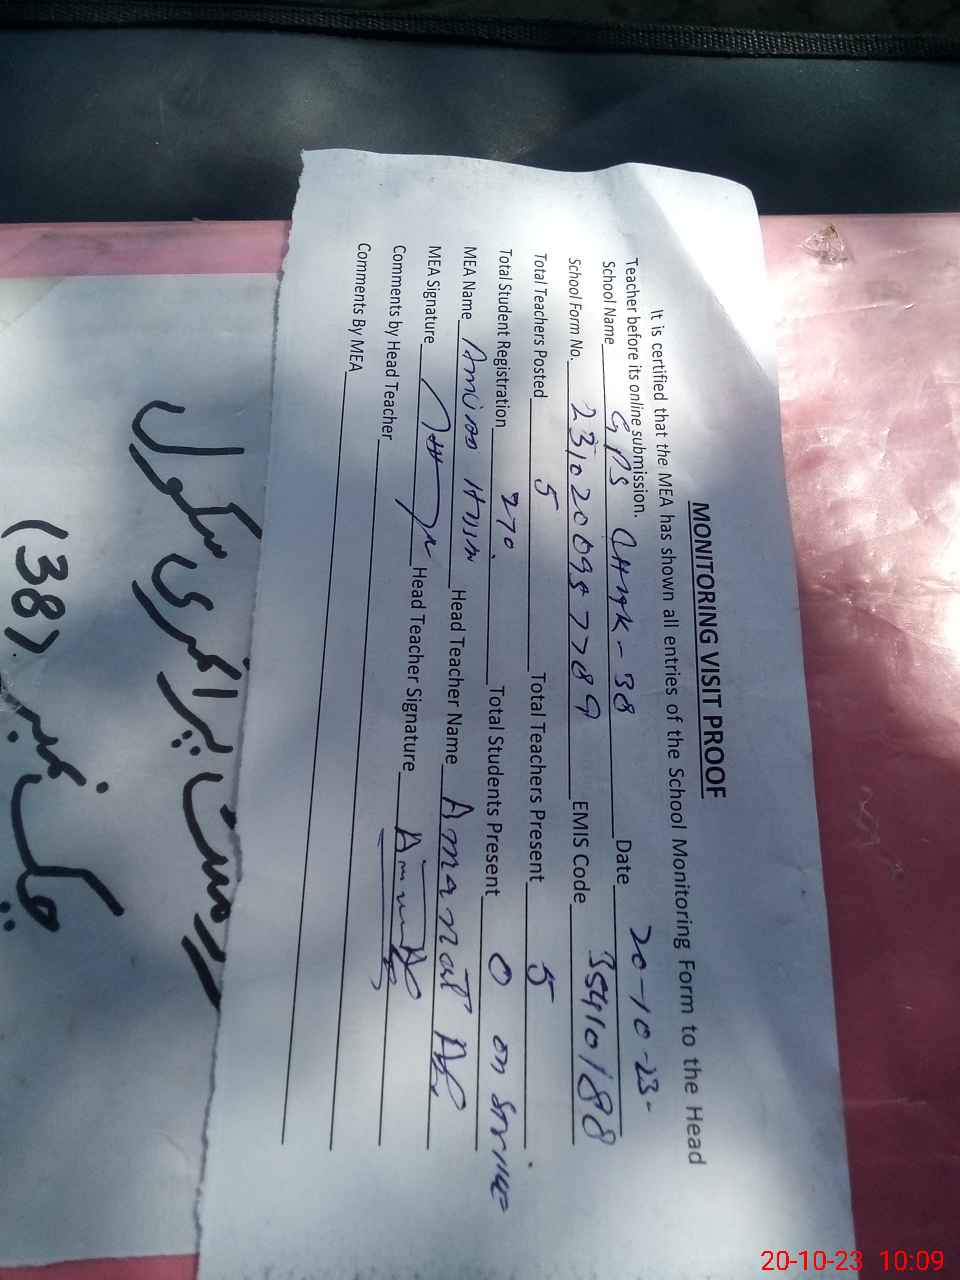 MONITORING VISIT PROOF
It is certified that the MEA has shown all entries of the School Monitoring Form to the Head
Teacher before its online submission.
School Name GPS CHAK-38 Date 20-10-23-
School Form No. 2310200957789 EMIS Code 35410188
Total Teachers Posted 5 Total Teachers Present 5
Total Student Registration 270. Total Students Present 0 on STrike
MEA Name Head Teacher Name Amanat Ali
MEA Signature Head Teacher Signature
Comments by Head Teacher
Comments By MEA
پرائمری سکول
چک نمبر (38)
20-10-23 10:09